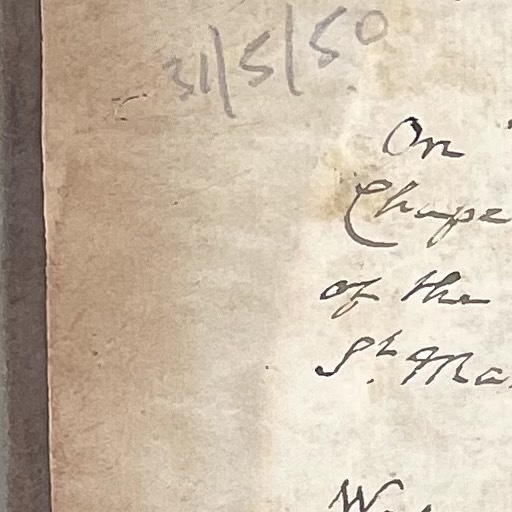 31/5/50
On
Chape
of the
St. Ma
W